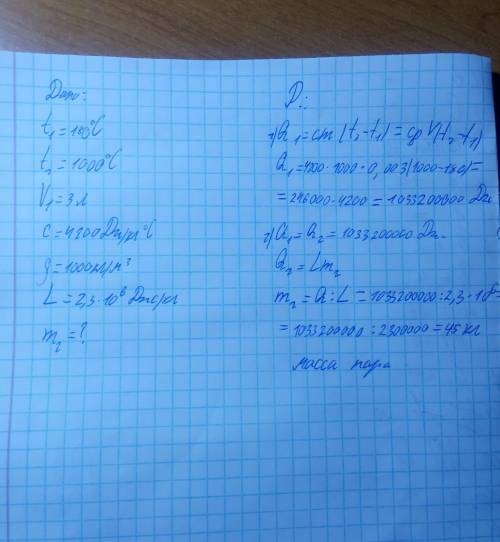 Дано:
t₁=180°C
t₂=1000°C
V₁=3 л
c=4200 Дж/кг°C
ρ=1000 кг/м³
L=2,3·10⁶ Дж/кг
m₂=?
Р.:
1) Q₁=cm(t₂-t₁)=cρV(t₂-t₁)
Q₁=4200·1000·0,003(1000-180)=
=246000·4200=1033200000 Дж
2) Q₁=Q₂=1033200000 Дж.
Q₂=Lm₂
m₂=Q:L=1033200000:2,3·10⁶=
=1033200000:2300000=45 кг
масса пара